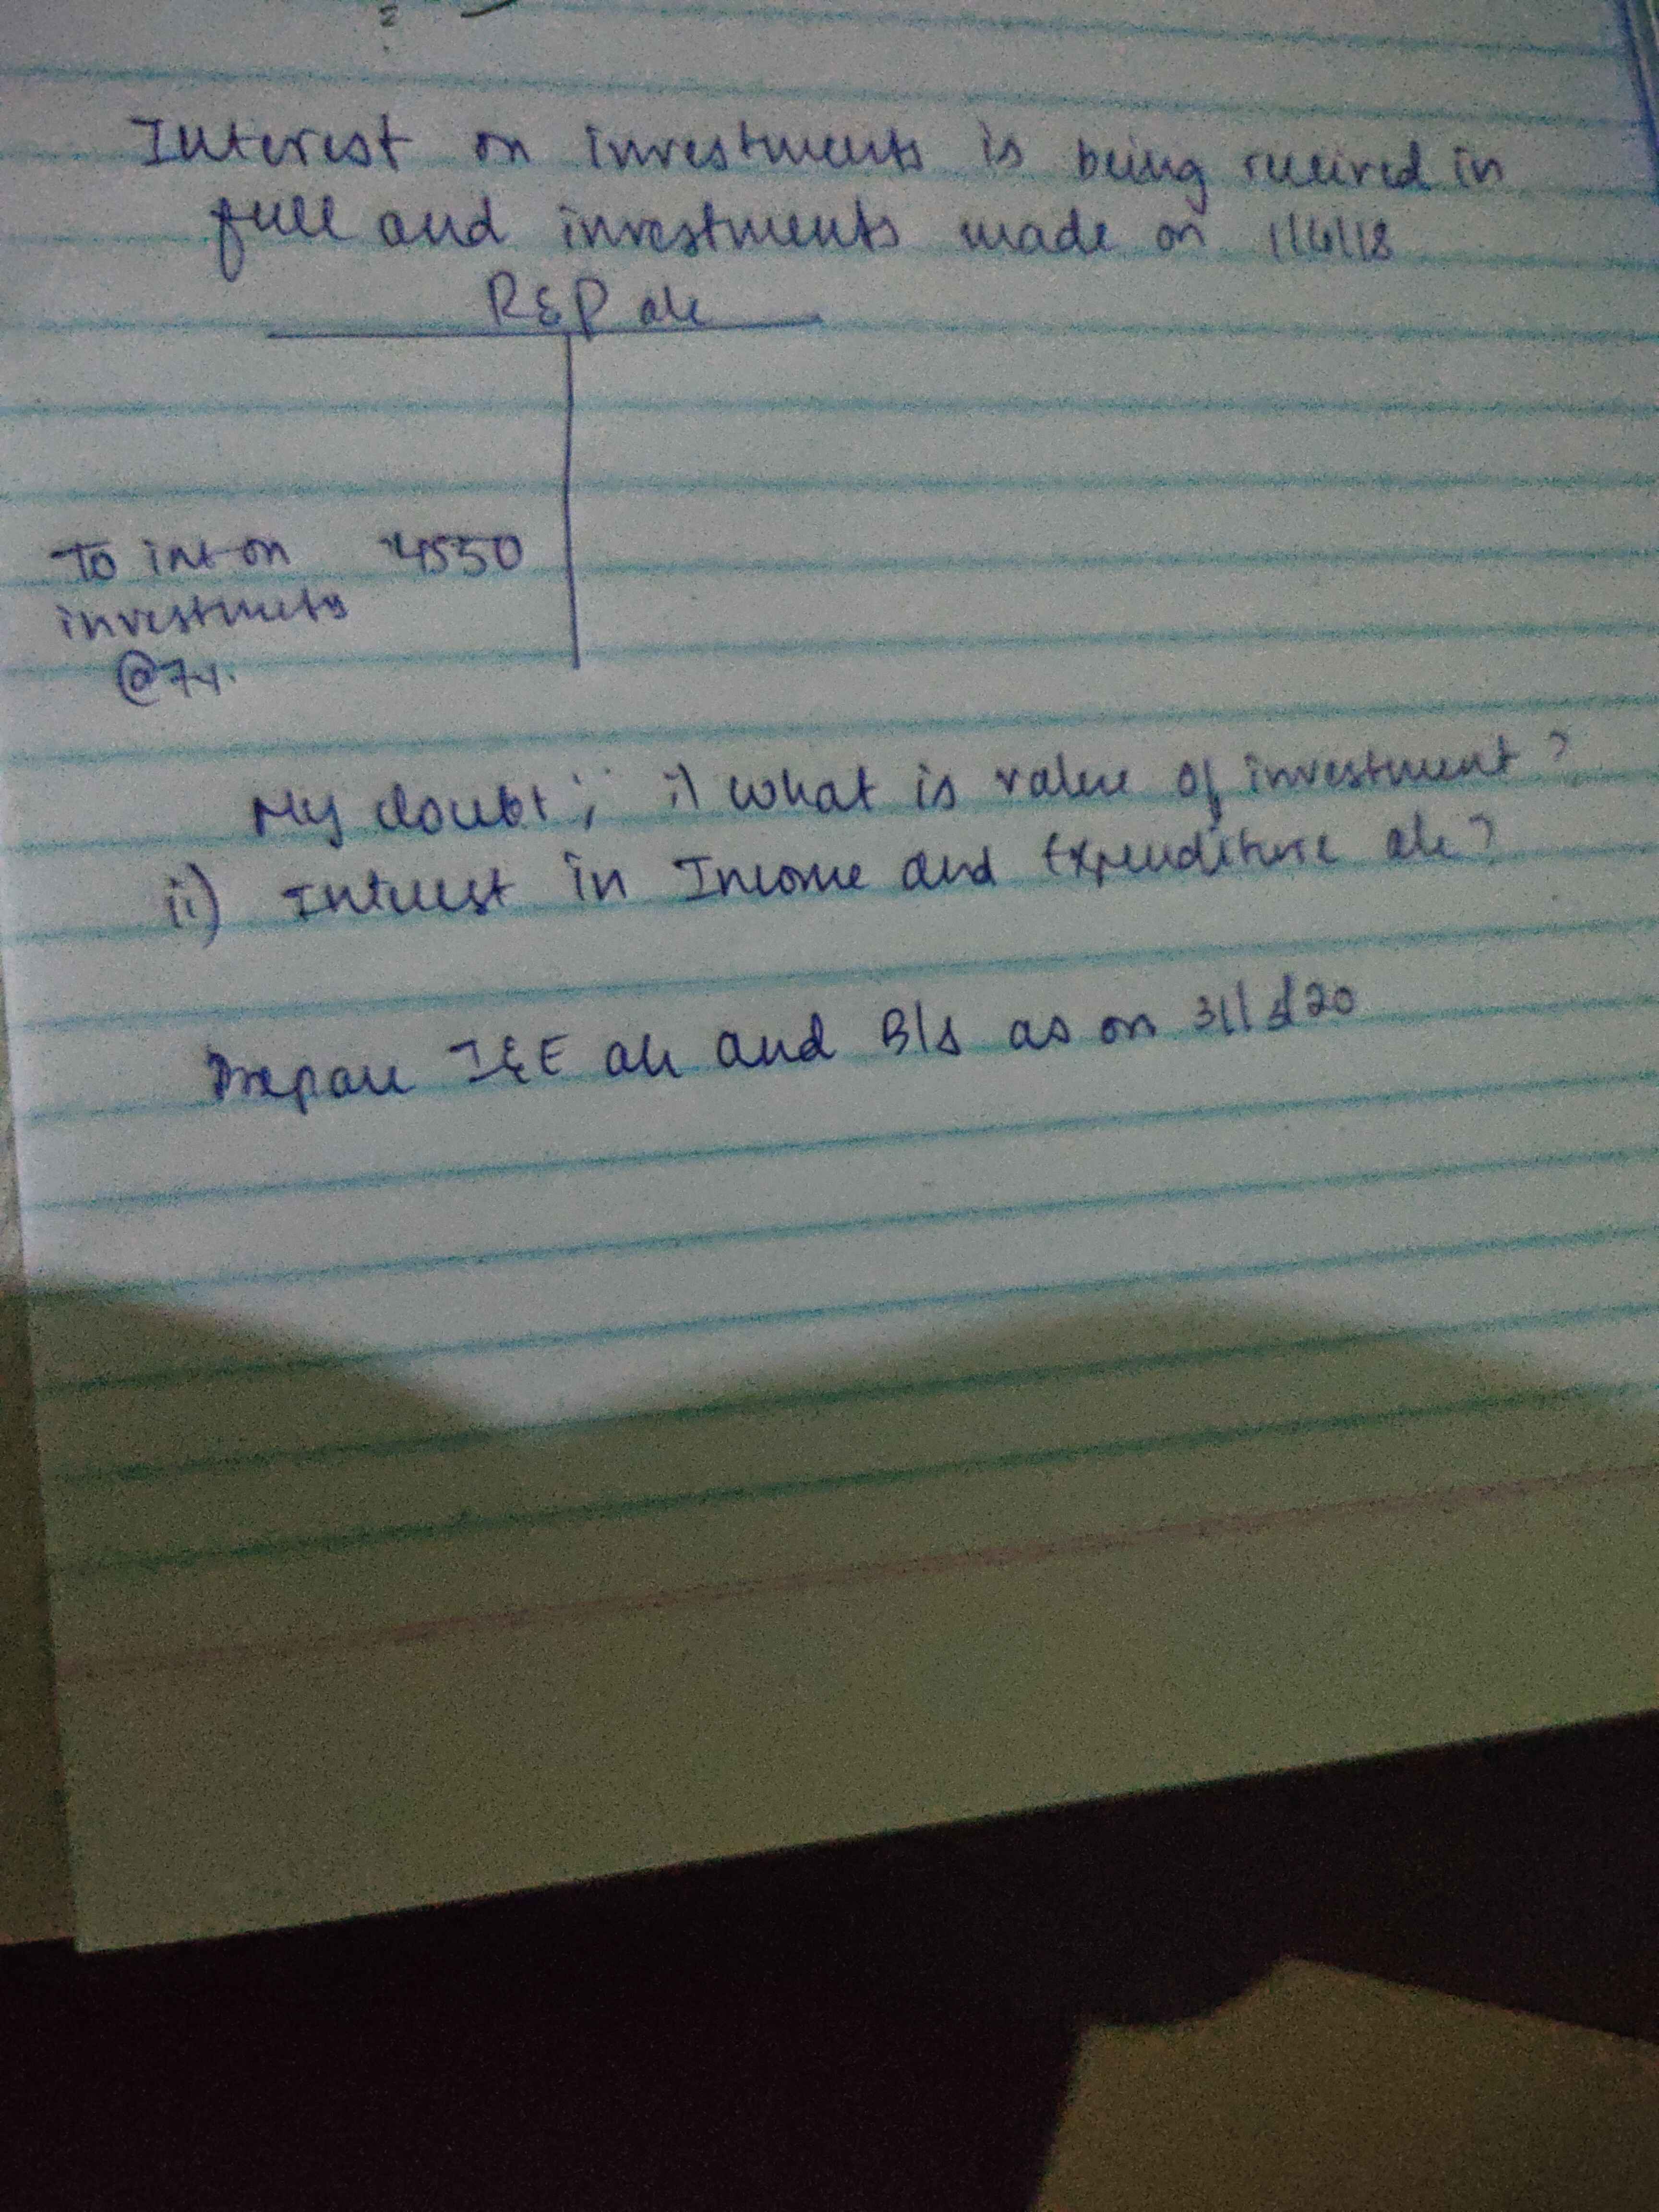 Interest on investments is being received in
full and investments made on
R&P a/c
To int on 4550
investments
@7%.
My doubt; i) what is value of investment?
ii) Interest in Income and Expenditure a/c?
Prepare I&E a/c and B/s as on 31/3/20